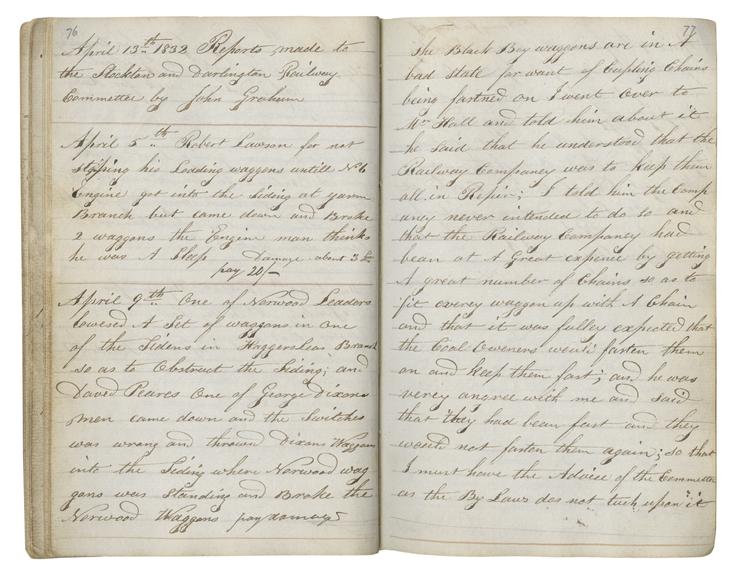 76
April 13th 1832 Reports made to
the Stockton and Darlington Railway
Committee by John Graham
April 5th Robert Lawson for not
stopping his Lodding waggons untill No 6
Engine got into the Siding at yarm
Branch but came down and Broke
2 waggons the Engin man thinks
he was A Sleep Damage about 3£
pay 20/-
April 9th One of Norwood Leaders
lowesed A Set of waggons in one
of the Sidens in Haggersleas Branch
so as to Obstruct the Siding; and
David Peares One of George Dixons
men came down and the Switches
was wrong and thrown Dixons Waggons
into the Siding where Norwood wag
gons was Standing and Broke the
Norwood Waggons pay damage
77
The Black Boy waggons are in A
bad State for want of Cupling Chains
being fastned on I went Over to
Mr Hall and told him about it
he said that he understood that the
Railway Companey was to keep them
all in Repier; I told him the Comp
aney never intended to do so and
that the Railway Companey had
bean at A Great expence by getting
A great number of Chains so as to
fit everey waggon up with A Chain
and that it was fulley expected that
the Coal Oweners would fasten them
on and keep them fast; and he was
verey angree with me and said
that they had bean fast and they
would not fasten them again; so that
I must have the Advise of the Committe
as the By Laws does not tuch upon it